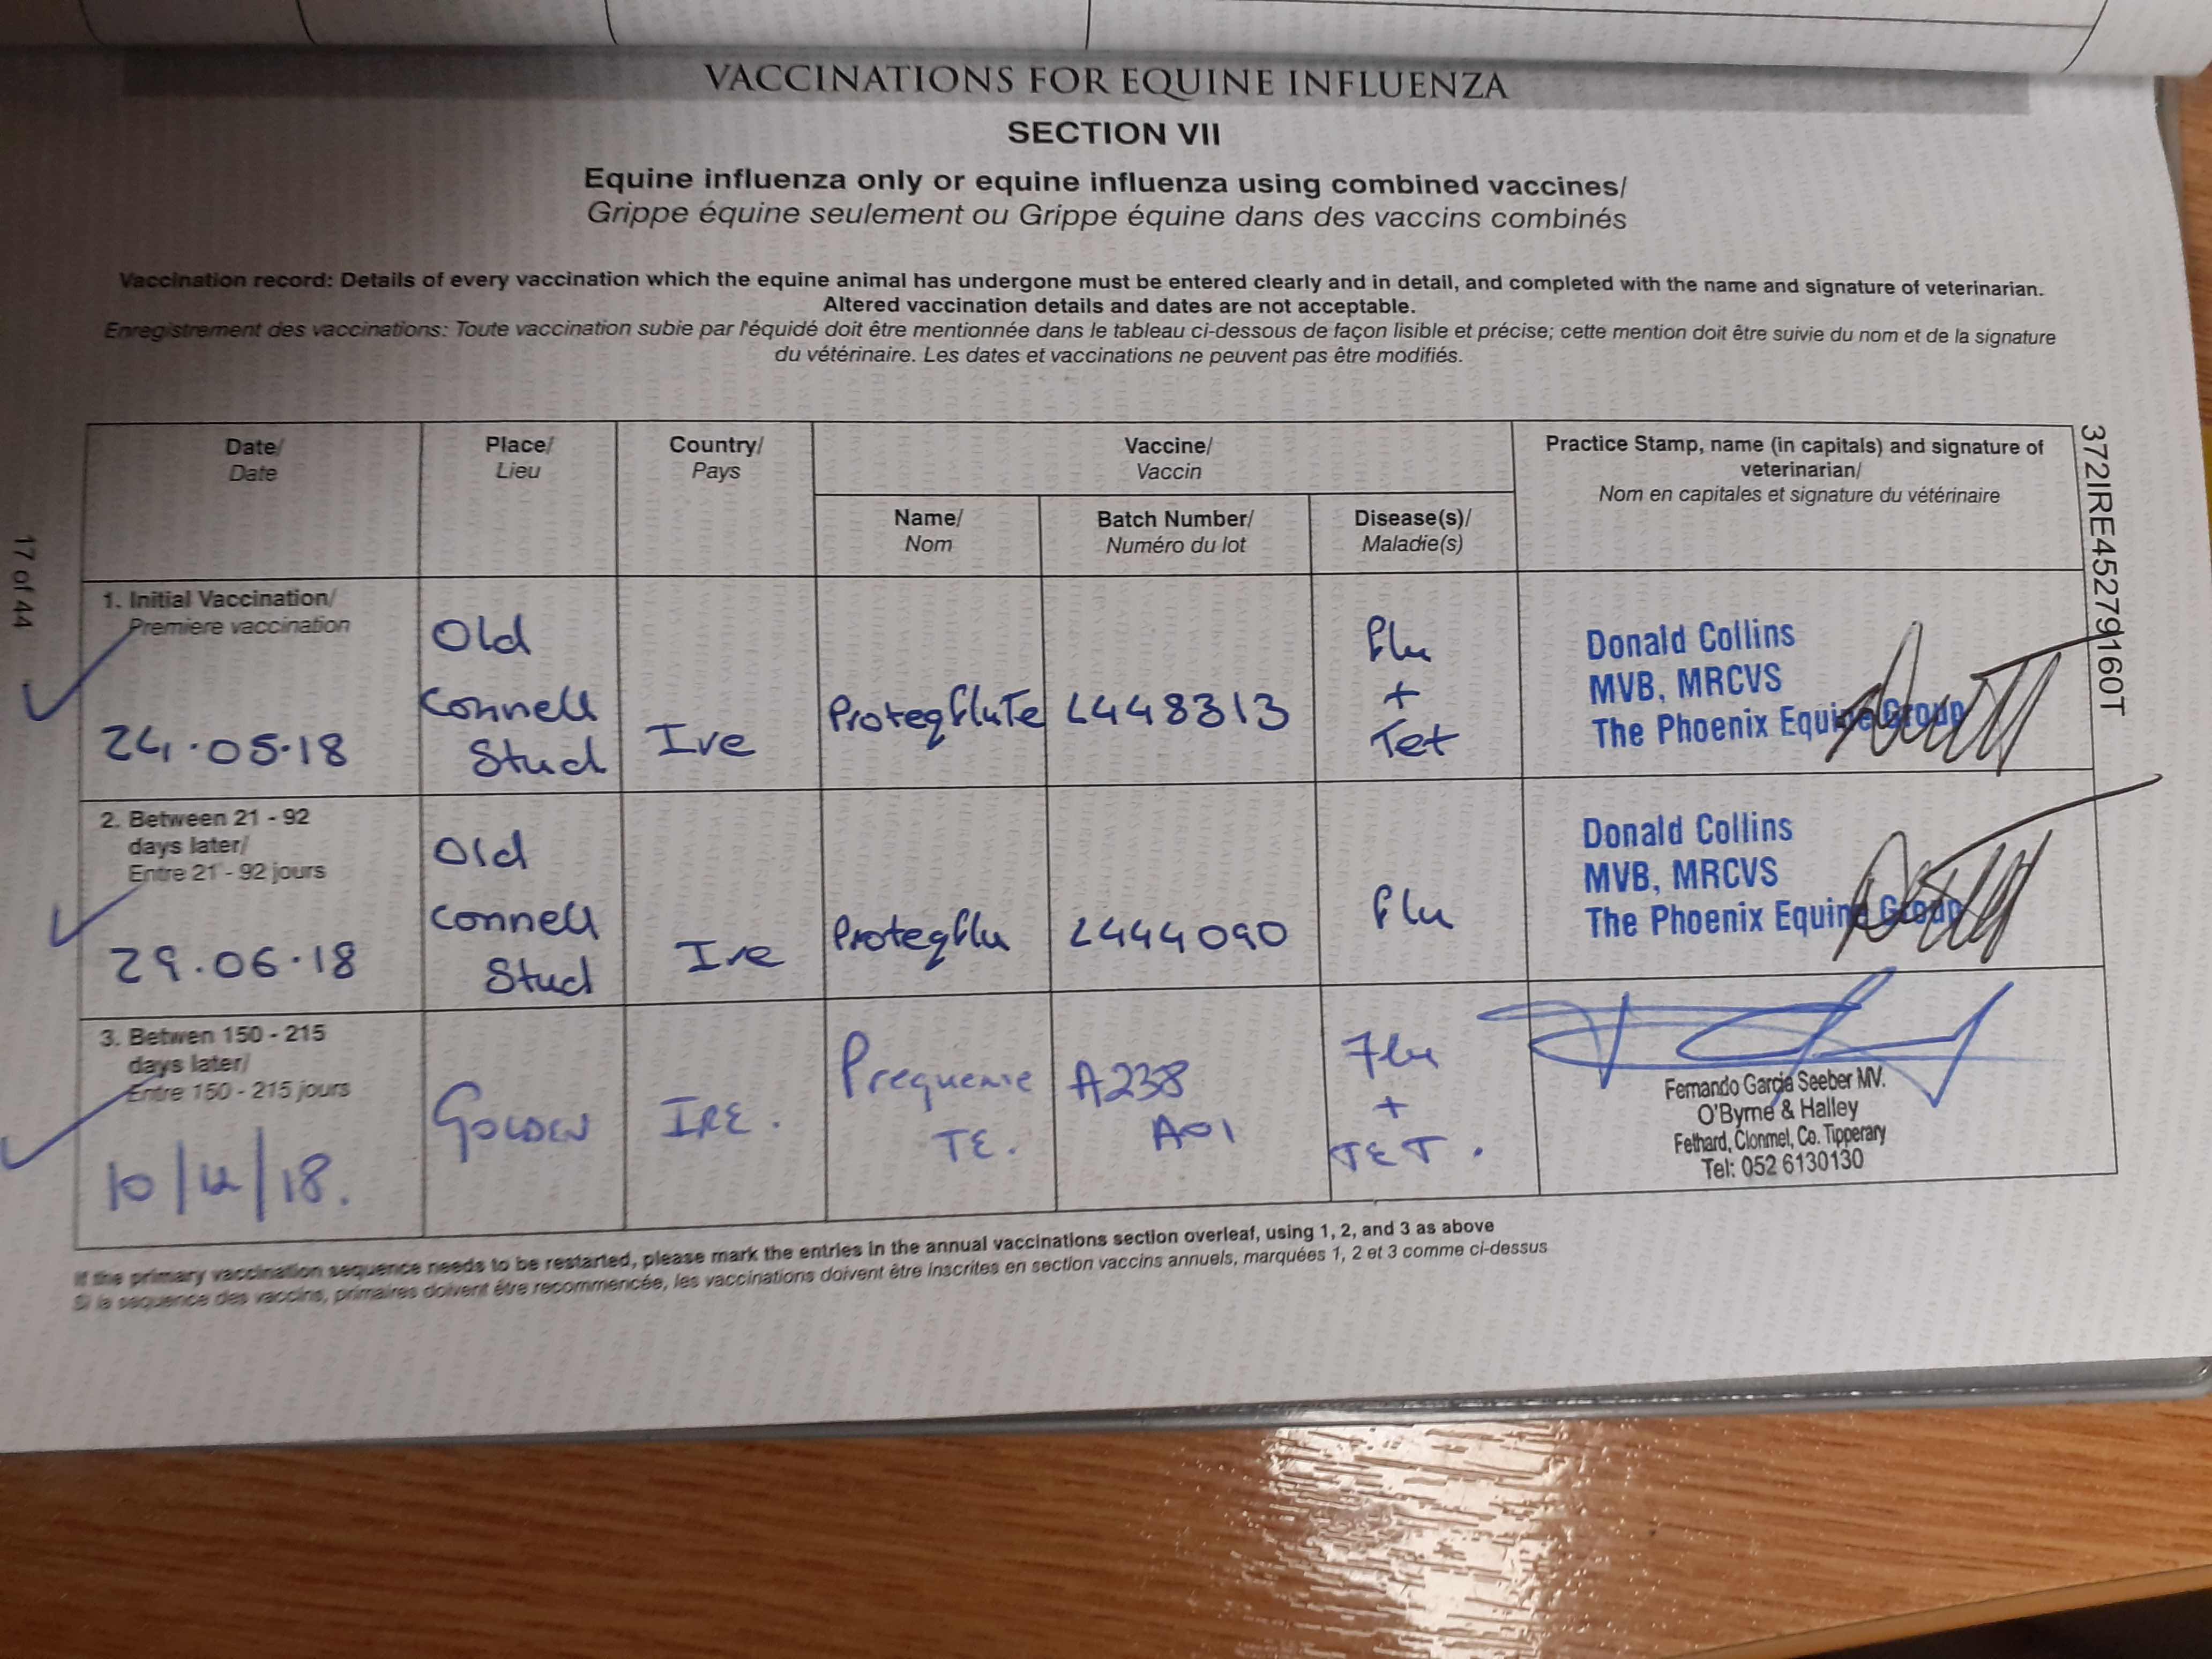 VACCINATIONS FOR EQUINE INFLUENZA
SECTION VII
Equine influenza only or equine influenza using combined vaccines/
Grippe équine seulement ou Grippe équine dans des vaccins combinés
Vaccination record: Details of every vaccination which the equine animal has undergone must be entered clearly and in detail, and completed with the name and signature of veterinarian.
Altered vaccination details and dates are not acceptable.
Enregistrement des vaccinations: Toute vaccination subie par l'équidé doit être mentionnée dans le tableau ci-dessous de façon lisible et précise; cette mention doit être suivie du nom et de la signature
du vétérinaire. Les dates et vaccinations ne peuvent pas être modifiés.
Date/
Date
Place/
Lieu
Country/
Pays
Vaccine/
Vaccin
Name/
Nom
Batch Number/
Numéro du lot
Disease(s)/
Maladie(s)
Practice Stamp, name (in capitals) and signature of
veterinarian/
Nom en capitales et signature du vétérinaire
1. Initial Vaccination/
Premiere vaccination
24.05.18
Old
Connell
Stud
Ire
ProteqfluTe
L448313
Flu
+
Tet
Donald Collins
MVB, MRCVS
The Phoenix Equine Group
2. Between 21 - 92
days later/
Entre 21 - 92 jours
29.06.18
Old
Connell
Stud
Ire
Proteqflu
L444090
Flu
Donald Collins
MVB, MRCVS
The Phoenix Equine Group
3. Betwen 150 - 215
days later/
Entre 150 - 215 jours
10/12/18.
GOLDEN
IRE.
Prequenze
TE.
A238
A01
Flu
+
TET.
Fernando Garcia Seeber MV.
O'Byrne & Halley
Fethard, Clonmel, Co. Tipperary
Tel: 052 6130130
If the primary vaccination sequence needs to be restarted, please mark the entries in the annual vaccinations section overleaf, using 1, 2, and 3 as above
Si la sequence des vaccins, primaires doivent être recommencée, les vaccinations doivent être inscrites en section vaccins annuels, marquées 1, 2 et 3 comme ci-dessus
17 of 44
372IRE452779160T